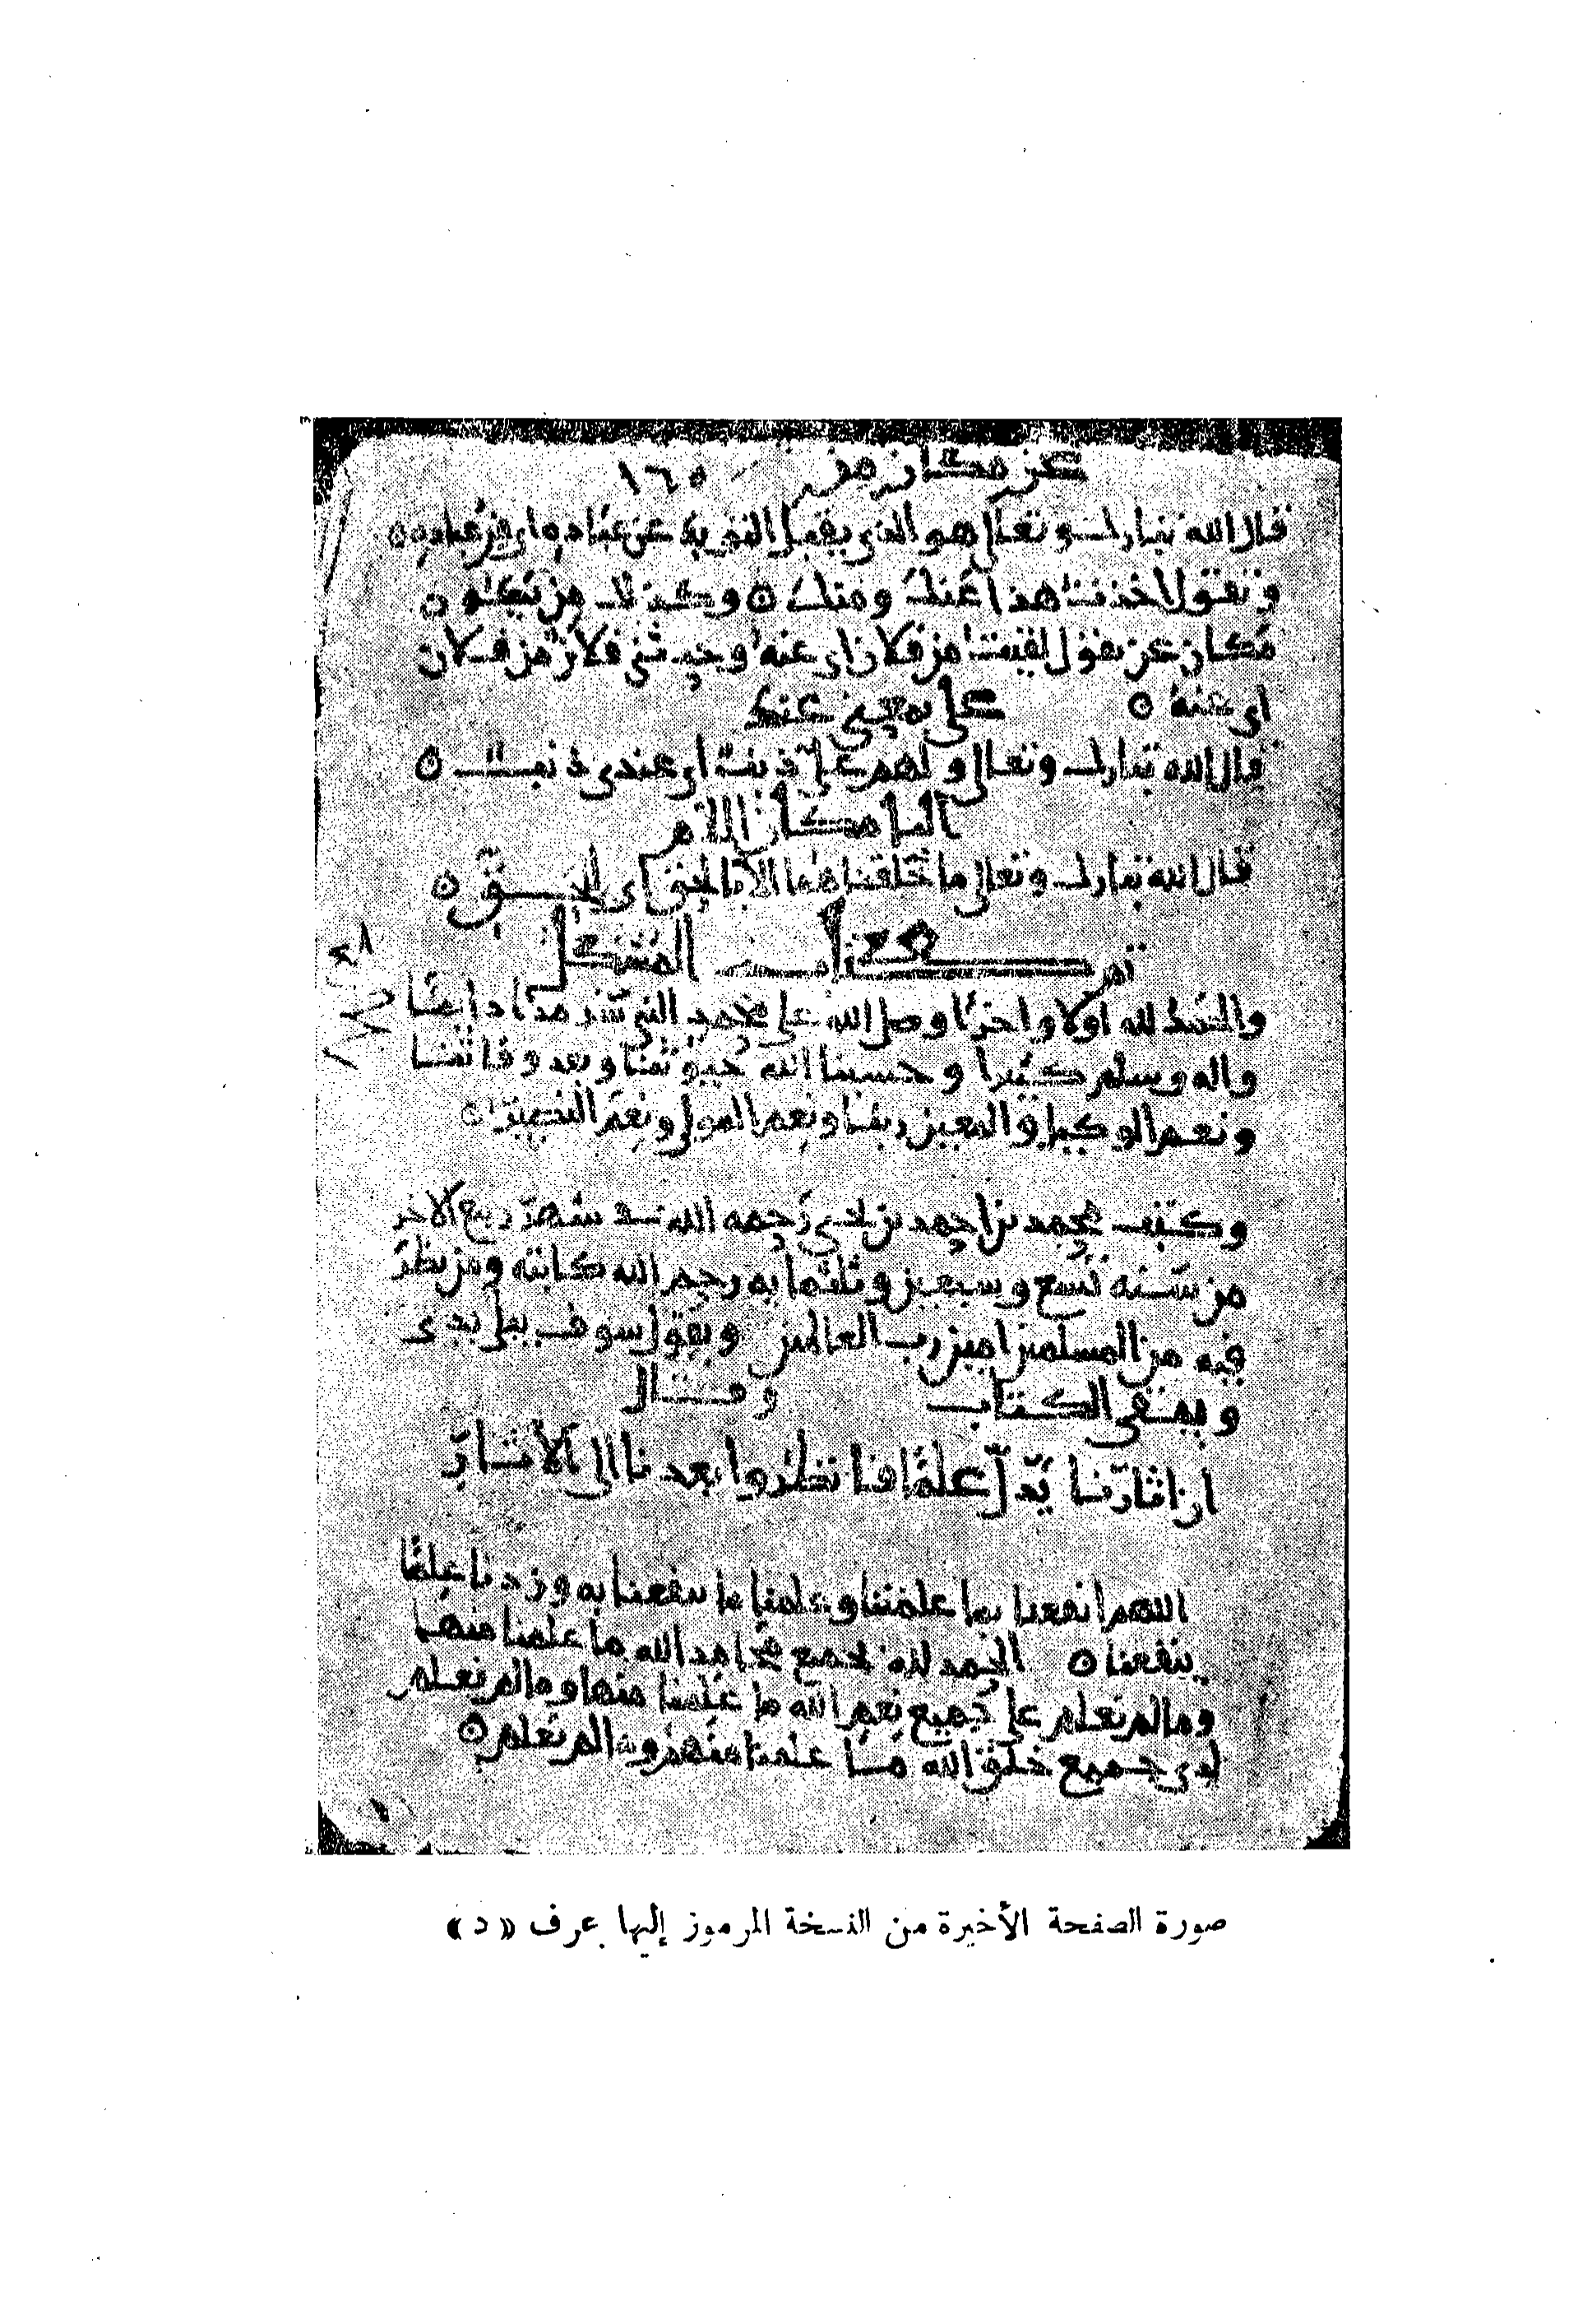 عن مكان من ١٦٥
قال الله تبارك وتعالى هو الذي يقبل التوبة عن عباده اي من عباده ۞
وتقول اخذت هذا عنك ومنك ۞ وكذلك من تكون
مكان عن تقول لقيت من فلان اي عنه وحدثني فلان من فلان
اي عنه ۞ على بمعنى عند
قال الله تبارك وتعالى ولهم علي ذنب اي عندي ذنب ۞
البا مكان اللام
قال الله تبارك وتعالى ما خلقناهما الا بالحق اي للحق ۞
تم كتاب المشكل
والحمد لله اولا واخرا وصلى الله على محمد النبي دايما
واله وسلم كثيرا وحسبنا الله وبعد وفاتنا
ونعم الوكيل والمعين ربنا ونعم المولى ونعم النصير ۞
وكتب محمد بن احمد بن يحيى رحمه الله في شهر ربيع الاخر
من سنه تسع وسبعين وثلثمايه رحم الله كاتبه ومن نظر
فيه من المسلمين امين رب العالمين ويقول سوف يبلى يدي
ويبقى الكتاب وقال
ان اثارنا تدل علينا فانظروا بعدنا الى الاثار
اللهم انفعنا بما علمتنا وعلمنا ما ينفعنا به وزدنا علما
ينفعنا ۞ الحمد لله بجميع محامد الله ما علمنا منها
وما لم نعلم على جميع نعم الله ما علمنا منها وما لم نعلم
جميع خلق الله ما علمنا منهم وما لم نعلم ۞
صورة الصفحة الأخيرة من النسخة المرموز إليها بحرف « د »